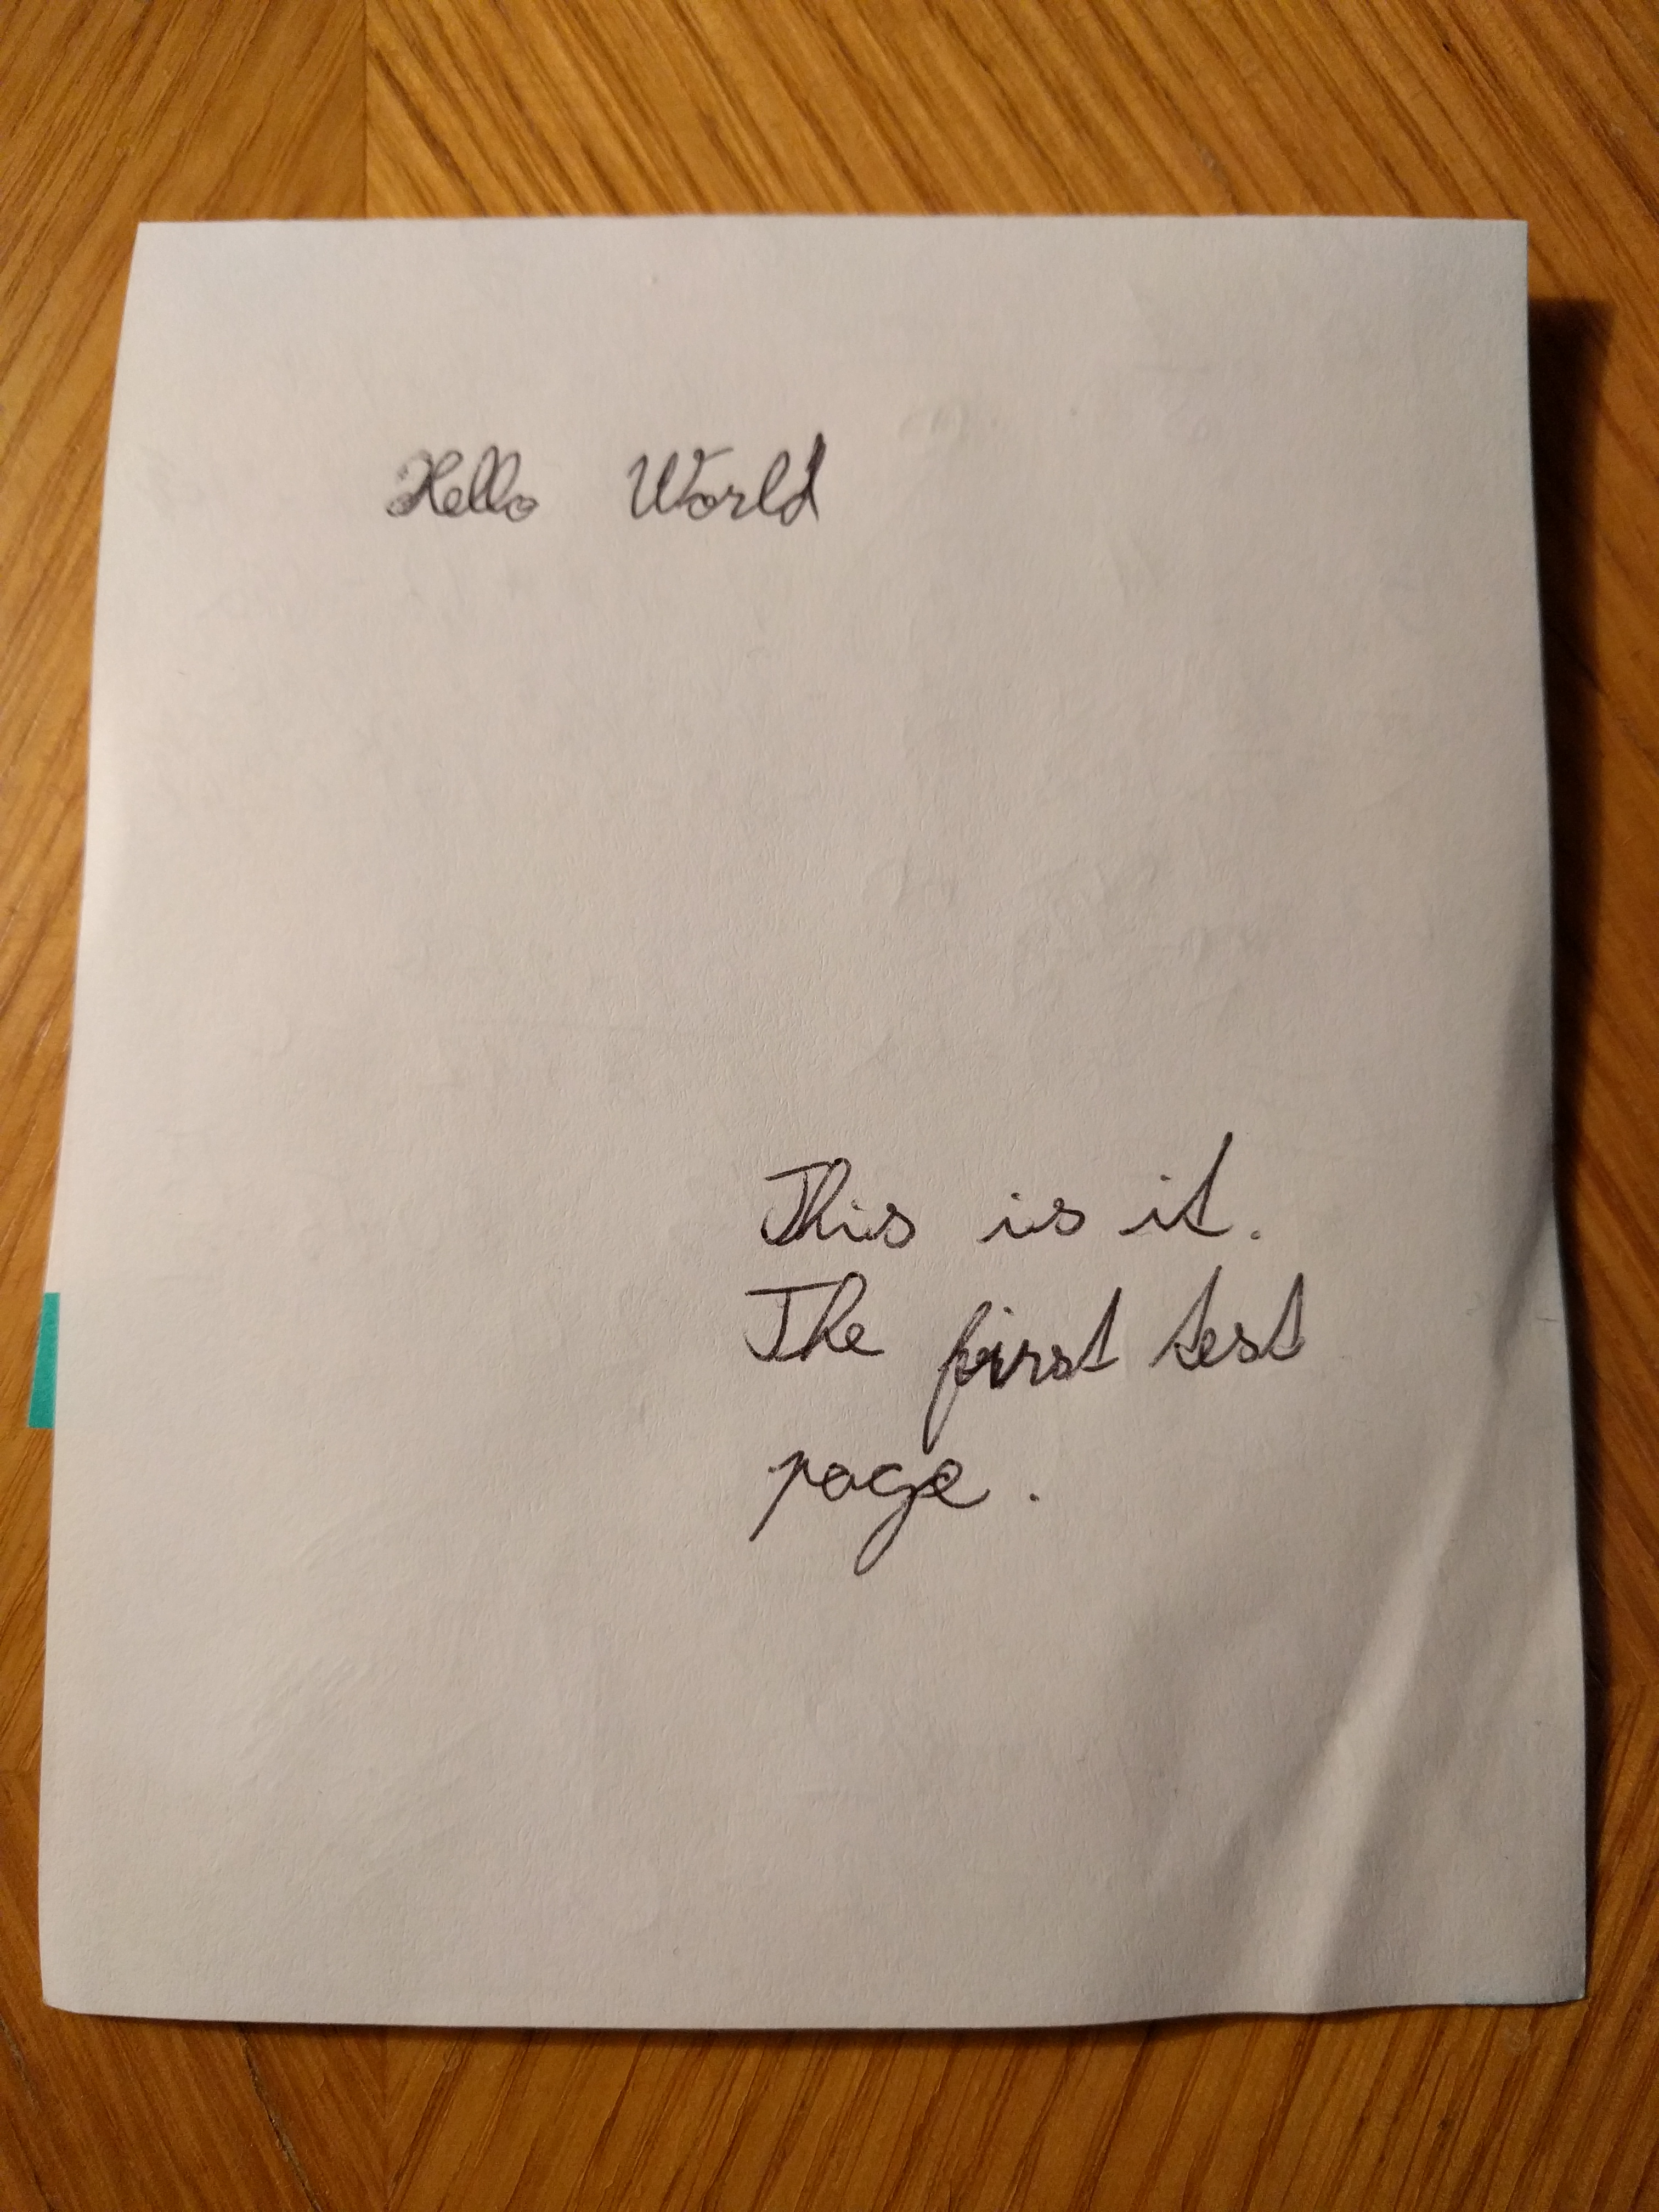 Hello World
This is it.
The first test
page.